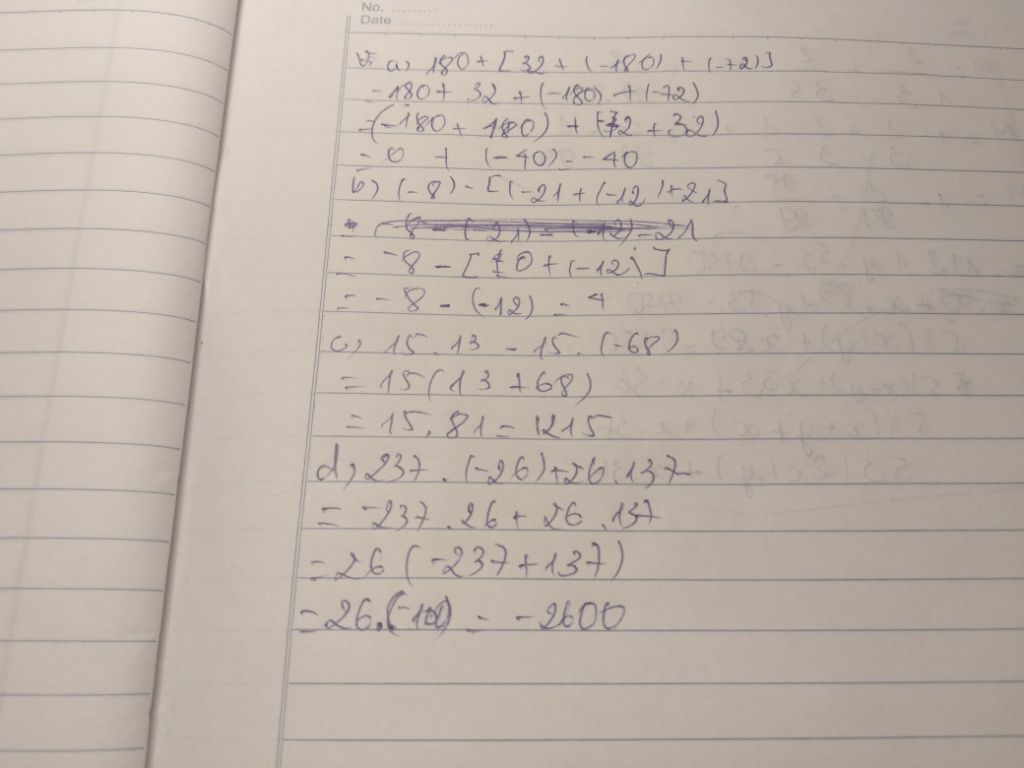 No. ..........
Date ....................
a) 180 + [32 + (-180) + (-72)]
= 180 + 32 + (-180) + (-72)
= (-180 + 180) + (-72 + 32)
= 0 + (-40) = -40
b) (-8) - [(-21 + (-12) + 21]
= -8 - [0 + (-12)]
= -8 - (-12) = 4
c) 15.13 - 15.(-68)
= 15(13 + 68)
= 15.81 = 1215
d) 237.(-26) + 26.137
= -237.26 + 26.137
= 26(-237 + 137)
= 26.(-100) = -2600